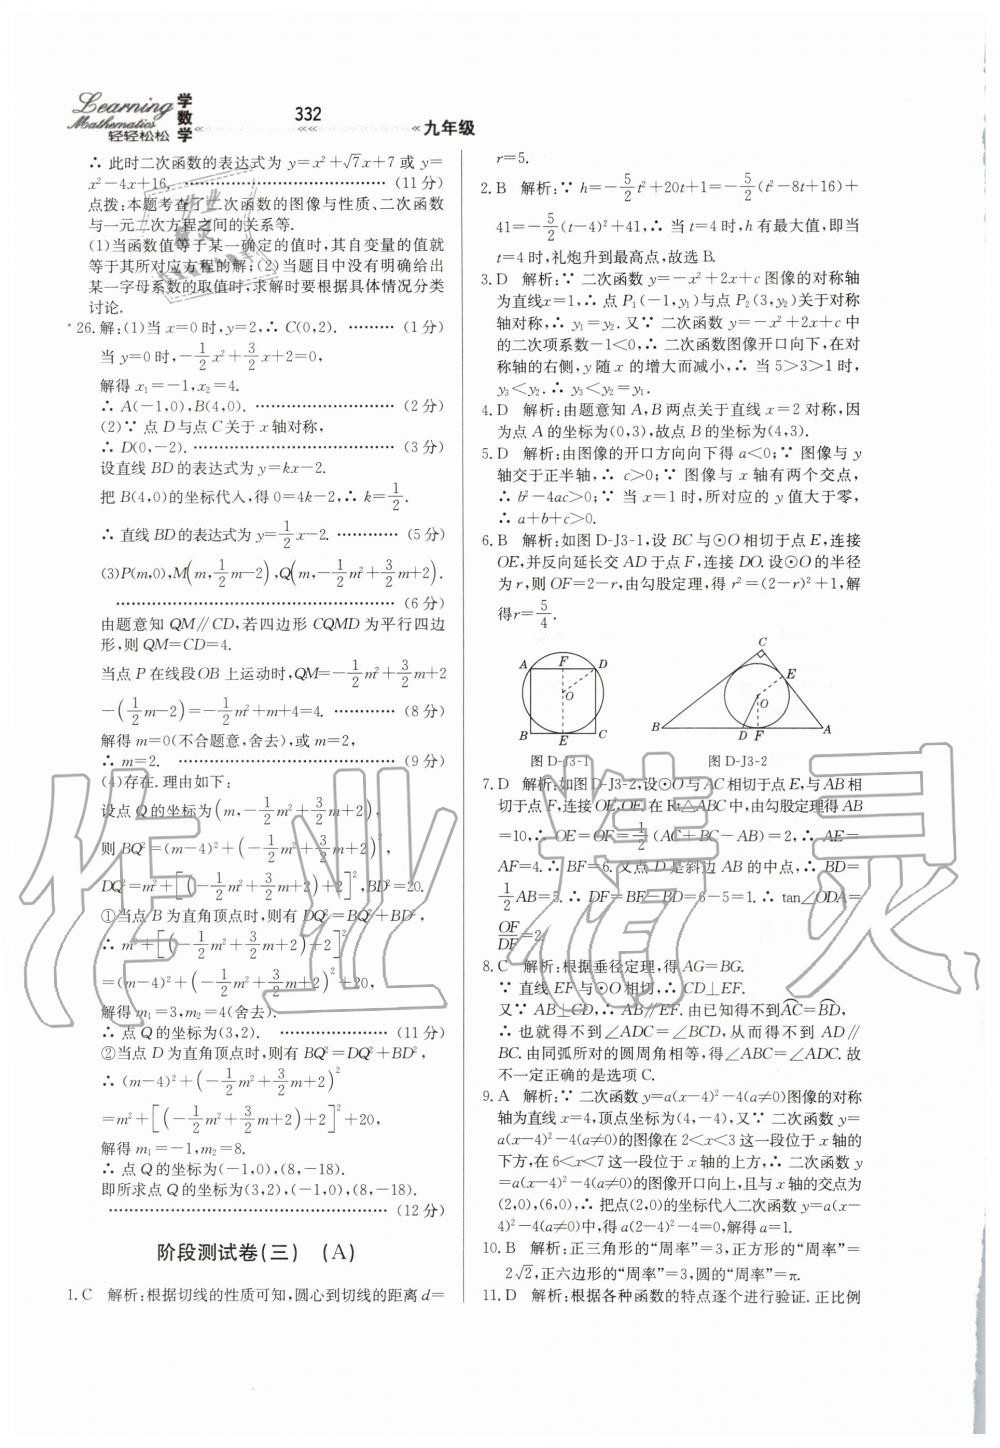 Learning
Mathematics
轻轻松松
学数学
332
九年级
∴ 此时二次函数的表达式为 y=x²+√7x+7 或 y=
x²-4x+16. ……………………………… (11 分)
点拨:本题考查了二次函数的图像与性质、二次函数
与一元二次方程之间的关系等.
(1)当函数值等于某一确定的值时,其自变量的值就
等于其所对应方程的解;(2)当题目中没有明确给出
某一字母系数的取值时,求解时要根据具体情况分类
讨论.
*26.解:(1)当 x=0 时,y=2,∴ C(0,2). ……… (1 分)
当 y=0 时,-1/2x²+3/2x+2=0,
解得 x₁=-1,x₂=4.
∴ A(-1,0),B(4,0). …………………… (2 分)
(2)∵ 点 D 与点 C 关于 x 轴对称,
∴ D(0,-2). ……………………………… (3 分)
设直线 BD 的表达式为 y=kx-2.
把 B(4,0)的坐标代入,得 0=4k-2,∴ k=1/2.
∴ 直线 BD 的表达式为 y=1/2x-2. ………… (5 分)
(3)P(m,0),M(m,1/2m-2),Q(m,-1/2m²+3/2m+2).
………………………………………… (6 分)
由题意知 QM∥CD,若四边形 CQMD 为平行四边
形,则 QM=CD=4.
当点 P 在线段 OB 上运动时,QM=-1/2m²+3/2m+2
-(1/2m-2)=-1/2m²+m+4=4. ………… (8 分)
解得 m=0(不合题意,舍去),或 m=2,
∴ m=2. …………………………………… (9 分)
(4)存在. 理由如下:
设点 Q 的坐标为(m,-1/2m²+3/2m+2),
则 BQ²=(m-4)²+(-1/2m²+3/2m+2)²,
DQ²=m²+[(-1/2m²+3/2m+2)+2]²,BD²=20.
①当点 B 为直角顶点时,则有 DQ²=BQ²+BD²,
∴ m²+[(-1/2m²+3/2m+2)+2]²
=(m-4)²+(-1/2m²+3/2m+2)²+20,
解得 m₁=3,m₂=4(舍去).
∴ 点 Q 的坐标为(3,2). ………………… (11 分)
②当点 D 为直角顶点时,则有 BQ²=DQ²+BD²,
∴ (m-4)²+(-1/2m²+3/2m+2)²
=m²+[(-1/2m²+3/2m+2)+2]²+20,
解得 m₁=-1,m₂=8.
∴ 点 Q 的坐标为(-1,0),(8,-18).
即所求点 Q 的坐标为(3,2),(-1,0),(8,-18).
………………………………………… (12 分)
阶段测试卷(三) (A)
1.C 解析:根据切线的性质可知,圆心到切线的距离 d=
r=5.
2.B 解析:∵ h=-5/2t²+20t+1=-5/2(t²-8t+16)+
41=-5/2(t-4)²+41,∴ 当 t=4 时,h 有最大值,即当
t=4 时,礼炮升到最高点,故选 B.
3.D 解析:∵ 二次函数 y=-x²+2x+c 图像的对称轴
为直线x=1,∴ 点 P₁(-1,y₁)与点 P₂(3,y₂)关于对称
轴对称,∴ y₁=y₂. 又∵ 二次函数 y=-x²+2x+c 中
的二次项系数-1<0,∴ 二次函数图像开口向下,在对
称轴的右侧,y 随 x 的增大而减小,∴ 当 5>3>1 时,
y₃<y₂. ∴ y₃<y₂=y₁.
4.D 解析:由题意知 A,B 两点关于直线 x=2 对称,因
为点 A 的坐标为(0,3),故点 B 的坐标为(4,3).
5.D 解析:由图像的开口方向向下得 a<0;∵ 图像与 y
轴交于正半轴,∴ c>0;∵ 图像与 x 轴有两个交点,
∴ b²-4ac>0;∵ 当 x=1 时,所对应的 y 值大于零,
∴ a+b+c>0.
6.B 解析:如图 D-J3-1,设 BC 与⊙O 相切于点 E,连接
OE,并反向延长交 AD 于点 F,连接 DO. 设⊙O 的半径
为 r,则 OF=2-r,由勾股定理,得 r²=(2-r)²+1,解
得r=5/4.
A F D
O
B E C
图 D-J3-1
C
E
O
B D F A
图 D-J3-2
7.D 解析:如图 D-J3-2,设⊙O 与 AC 相切于点 E,与 AB 相
切于点 F,连接 OE,OF. 在 Rt△ABC 中,由勾股定理得 AB
=10,∴ OE=OF=1/2(AC+BC-AB)=2,∴ AE=
AF=4. ∴ BF=6. 又点 D 是斜边 AB 的中点,∴ BD=
1/2AB=5. ∴ DF=BF-BD=6-5=1. ∴ tan∠ODA=
OF/DF=2.
8.C 解析:根据垂径定理,得 AG=BG.
∵ 直线 EF 与⊙O 相切,∴ CD⊥EF.
又∵ AB⊥CD,∴ AB∥EF. 由已知得不到⌒AC=⌒BD,
∴ 也就得不到∠ADC=∠BCD,从而得不到 AD∥
BC. 由同弧所对的圆周角相等,得∠ABC=∠ADC. 故
不一定正确的是选项 C.
9.A 解析:∵ 二次函数 y=a(x-4)²-4(a≠0)图像的对称
轴为直线 x=4,顶点坐标为(4,-4),又∵ 二次函数 y=
a(x-4)²-4(a≠0)的图像在 2<x<3 这一段位于 x 轴的
下方,在 6<x<7 这一段位于 x 轴的上方,∴ 二次函数 y
=a(x-4)²-4(a≠0)的图像开口向上,且与 x 轴的交点为
(2,0),(6,0),∴ 把点(2,0)的坐标代入二次函数 y=a(x-
4)²-4(a≠0)中,得 a(2-4)²-4=0,解得 a=1.
10.B 解析:正三角形的“周率”=3,正方形的“周率”=
2√2,正六边形的“周率”=3,圆的“周率”=π.
11.D 解析:根据各种函数的特点逐个进行验证. 正比例
作业精灵